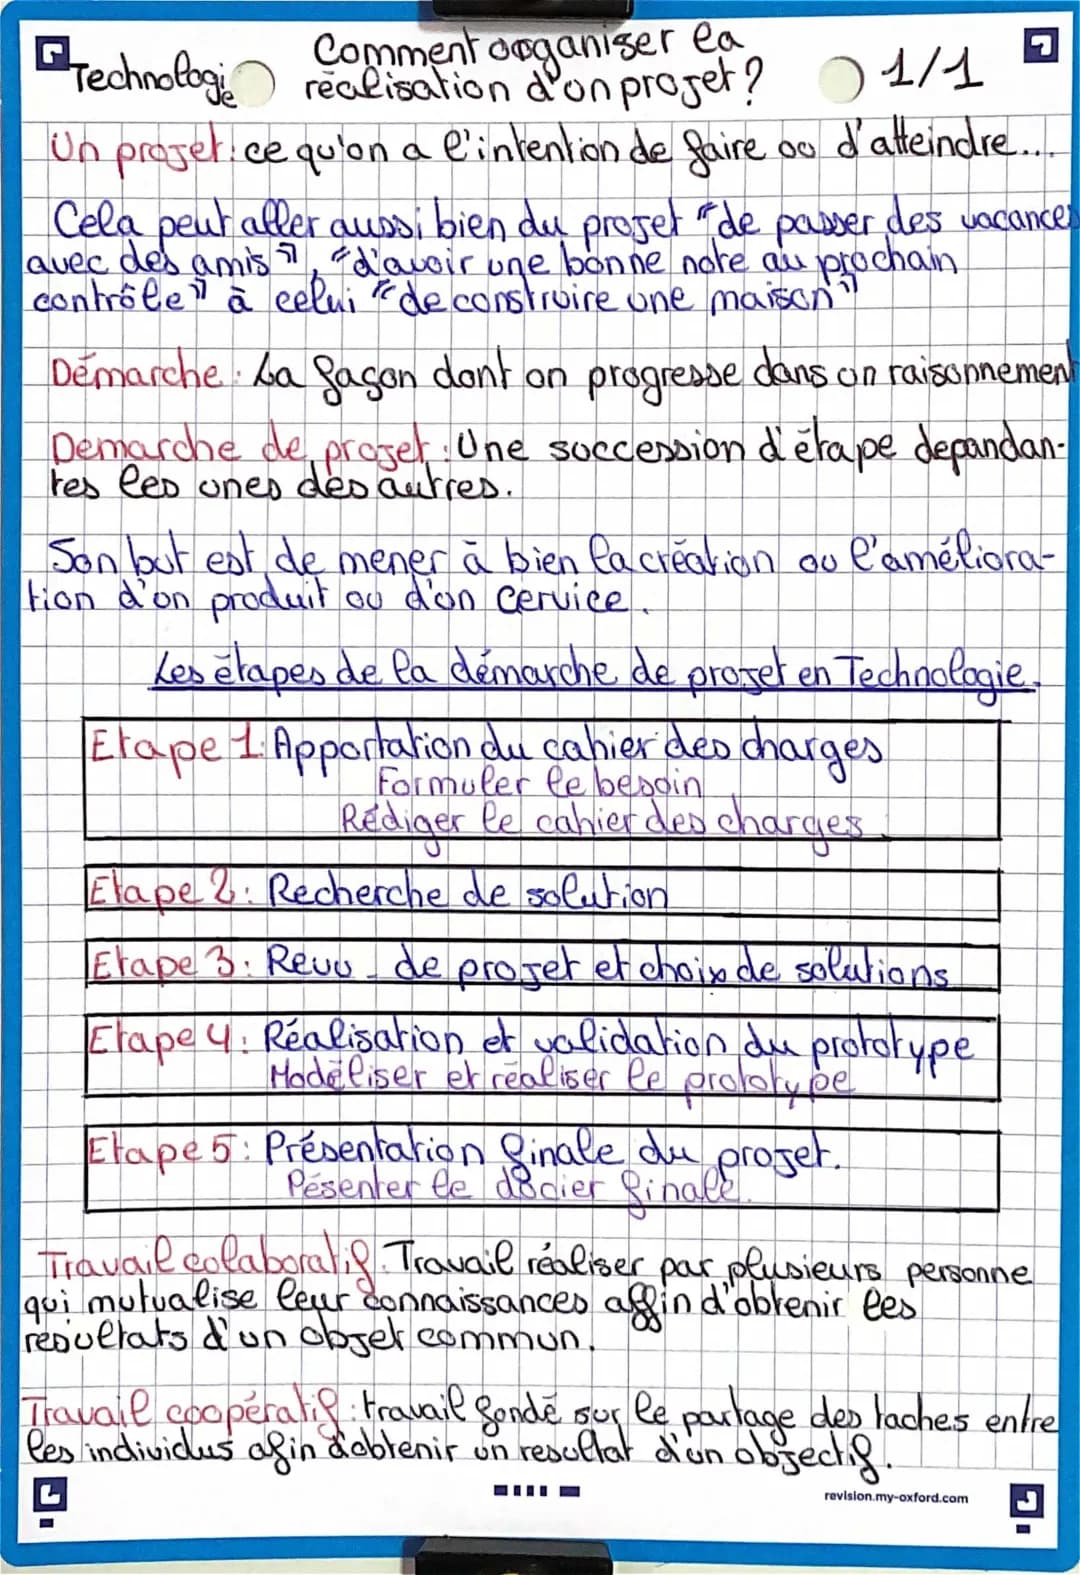 Technologie
Comment organiser la
réalisation d'un projet ?
1/1
Un projet : ce qu'on a l'intention de faire ou d'atteindre...
Cela peut aller aussi bien du projet "de passer des vacances
avec des amis", "d'avoir une bonne note au prochain
contrôle" à celui "de construire une maison"
Démarche : La façon dont on progresse dans un raisonnement
Demarche de projet : Une succession d'étape depandan-
tes les unes des autres.
Son but est de mener à bien la création ou l'améliora-
tion d'un produit ou d'un cervice.
Les étapes de la démarche de projet en Technologie.
Etape 1: Apportation du cahier des charges
Formuler le besoin
Rédiger le cahier des charges.
Etape 2: Recherche de solution
Etape 3: Revu de projet et choix de solutions
Etape 4: Réalisation et validation du prototype
Modéliser et réaliser le prototype
Etape 5: Présentation finale du projet.
Pésenter le docier finale.
Travail colaboratif. Travail réaliser par plusieurs personne
qui mutualise leur connaissances affin d'obtenir les
resultats d'un objet commun.
Travail coopératif : travail fondé sur le partage des taches entre
les individus afin d'obtenir un resultat d'un objectif.
revision.my-oxford.com